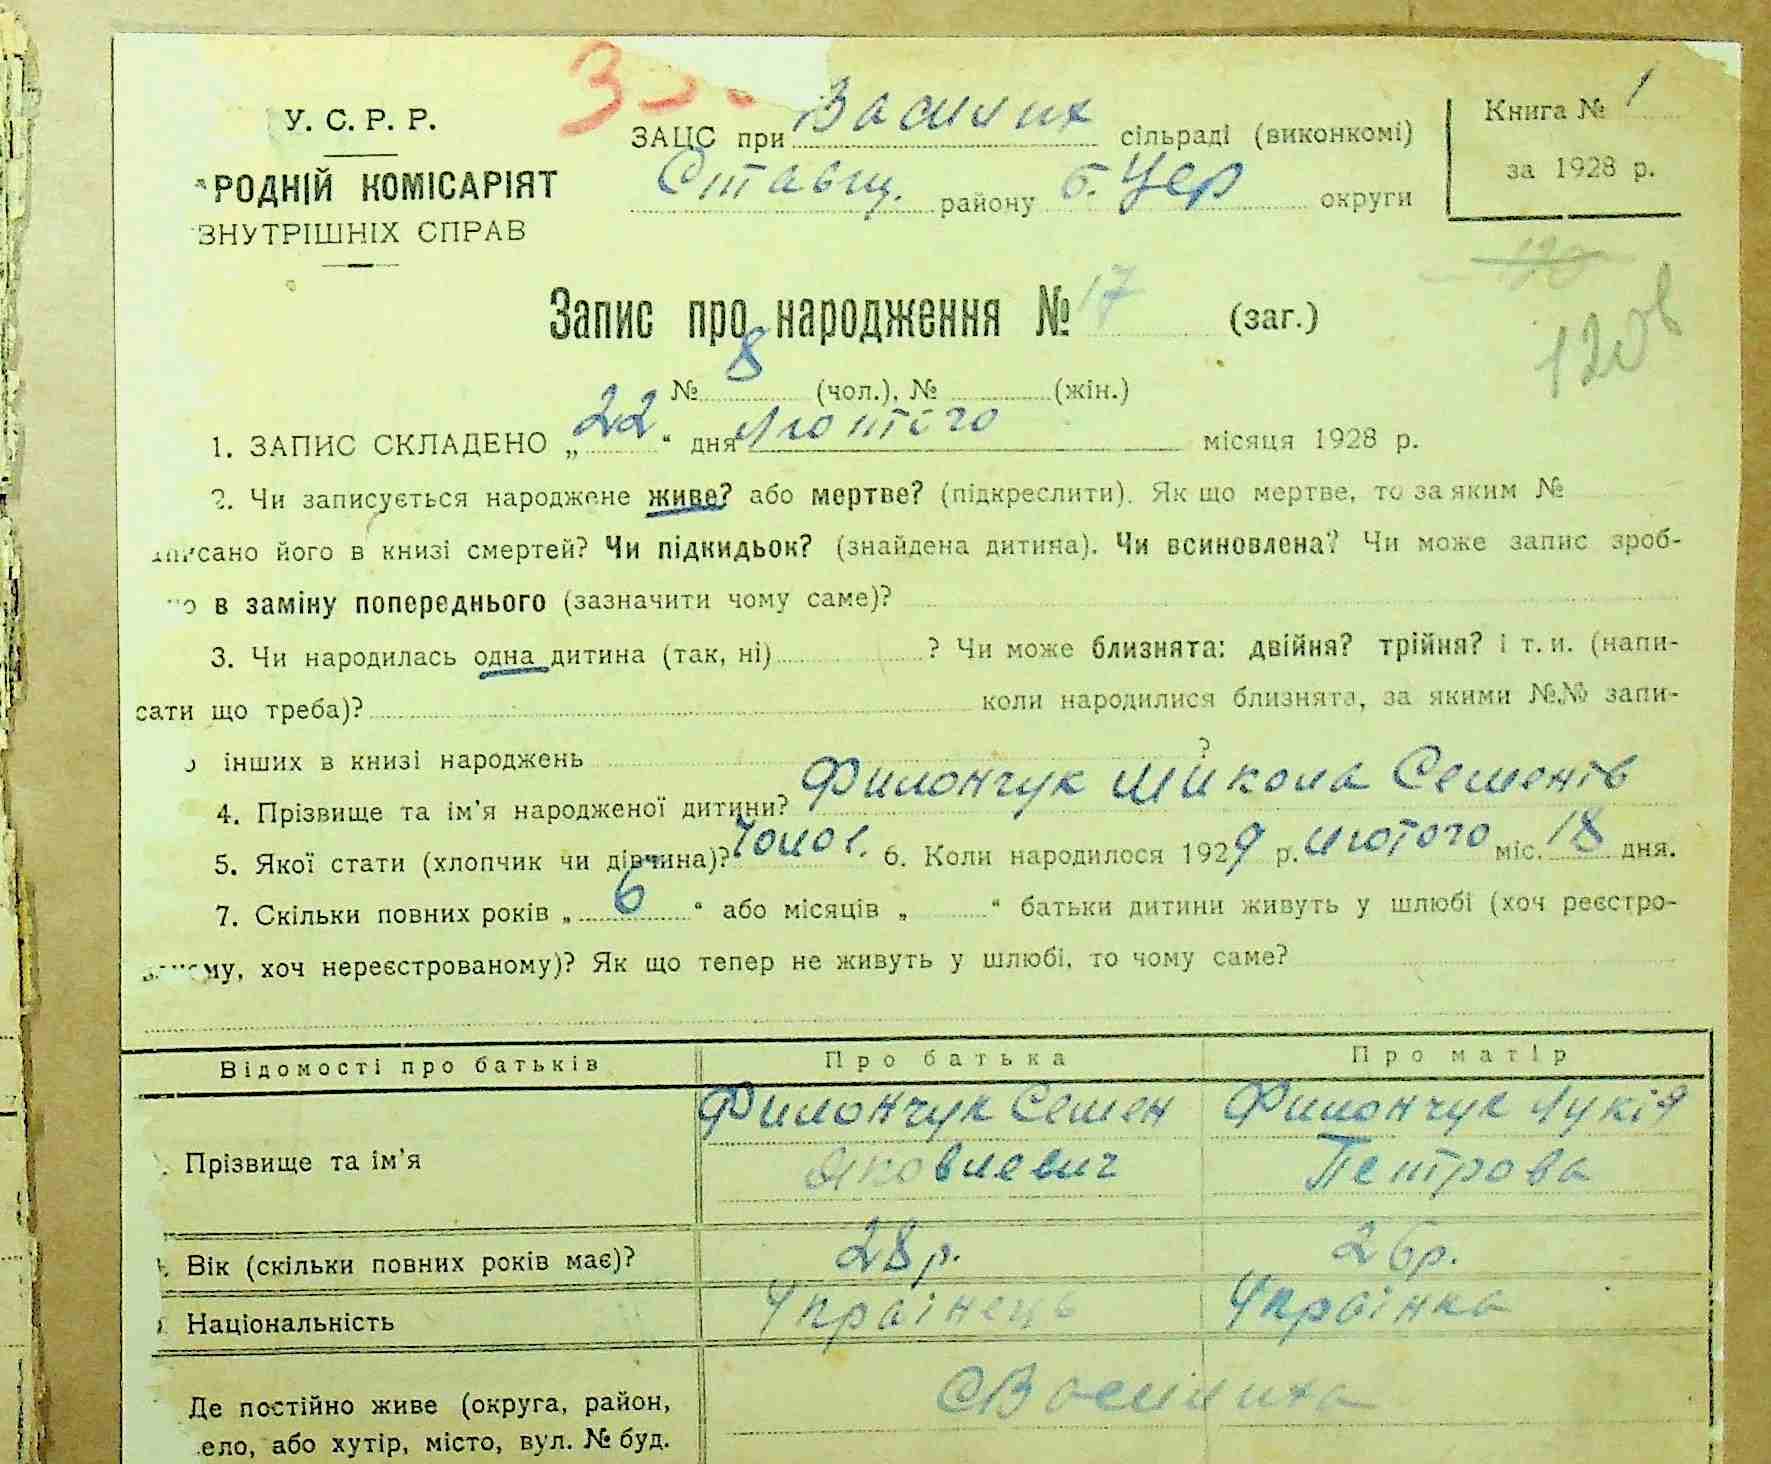 У. С. Р. Р.
РОДНІЙ КОМІСАРІЯТ
ВНУТРІШНІХ СПРАВ
ЗАЦС при Василих сільраді (виконкомі)
Ставищ. району Б. Цер округи
Книга № 1
за 1928 р.
120
120в
Запис про народження № 17 (заг.)
№ 8 (чол.), № (жін.)
1. ЗАПИС СКЛАДЕНО „22“ дня Лютого місяця 1928 р.
2. Чи записується народжене живе? або мертве? (підкреслити). Як що мертве, то за яким №
писано його в книзі смертей? Чи підкидьок? (знайдена дитина). Чи всиновлена? Чи може запис зроб-
о в заміну попереднього (зазначити чому саме)?
3. Чи народилась одна дитина (так, ні) ? Чи може близнята: двійня? трійня? і т. и. (напи-
сати що треба)? коли народилися близнята, за якими №№ запи-
о інших в книзі народжень ?
4. Прізвище та ім'я народженої дитини? Филончук Микола Семенів
5. Якої стати (хлопчик чи дівчина)? Чолов. 6. Коли народилося 1929 р. лютого міс. 18 дня.
7. Скільки повних років „6“ або місяців „ “ батьки дитини живуть у шлюбі (хоч реєстро-
ному, хоч нереєстрованому)? Як що тепер не живуть у шлюбі, то чому саме?
Відомості про батьків Про батька Про матір
Прізвище та ім'я Филончук Семен Яковлевич Филончук Лукія Петрова
Вік (скільки повних років має)? 28 р. 26 р.
Національність Українець Українка
Де постійно живе (округа, район, с Василиха
ело, або хутір, місто, вул. № буд.